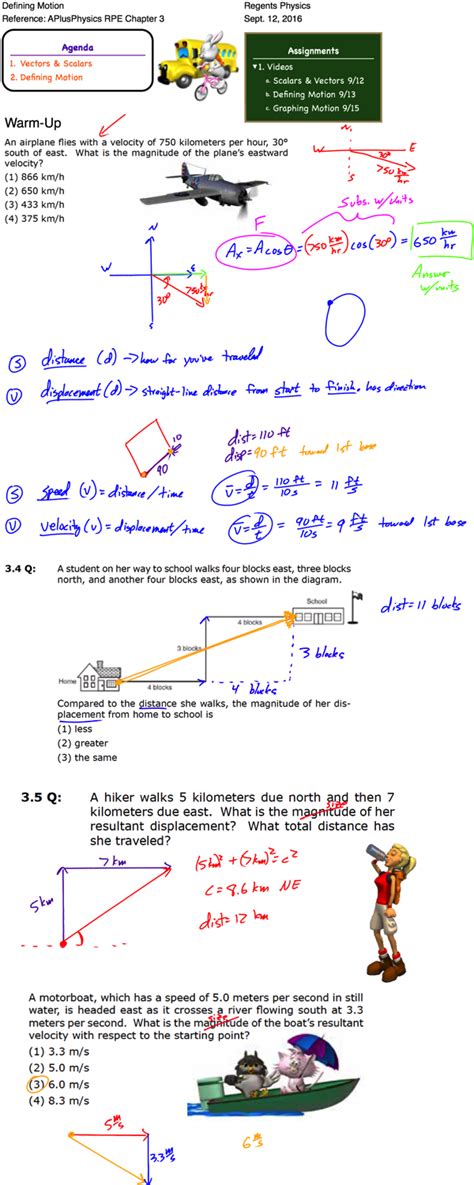 Defining Motion
Regents Physics
Reference: APlusPhysics RPE Chapter 3
Sept. 12, 2016
Agenda
1. Vectors & Scalars
2. Defining Motion
Assignments
▼1. Videos
a. Scalars & Vectors 9/12
b. Defining Motion 9/13
c. Graphing Motion 9/15
Warm-Up
An airplane flies with a velocity of 750 kilometers per hour, 30°
south of east. What is the magnitude of the plane's eastward
velocity?
(1) 866 km/h
(2) 650 km/h
(3) 433 km/h
(4) 375 km/h
N
W
E
S
30°
750 km/hr
Subs. w/units
F
Ax = A cosθ = (750 km/hr) cos(30°) = 650 km/hr
Answer
w/units
N
W
E
S
30°
750 km/hr
S distance (d) -> how far you've traveled
V displacement (d) -> straight-line distance from start to finish. has direction
10
90
dist = 110 ft
disp = 90 ft toward 1st base
S speed (v) = distance/time
v = d/t = 110 ft/10s = 11 ft/s
V velocity (v) = displacement/time
v = d/t = 90 ft/10s = 9 ft/s toward 1st base
3.4 Q: A student on her way to school walks four blocks east, three blocks
north, and another four blocks east, as shown in the diagram.
School
4 blocks
dist = 11 blocks
3 blocks
3 blocks
Home
4 blocks
4 blocks
Compared to the distance she walks, the magnitude of her dis-
placement from home to school is
(1) less
(2) greater
(3) the same
3.5 Q: A hiker walks 5 kilometers due north and then 7
kilometers due east. What is the magnitude of her
size
resultant displacement? What total distance has
she traveled?
7 km
5 km
(5km)² + (7km)² = c²
c = 8.6 km NE
dist = 12 km
A motorboat, which has a speed of 5.0 meters per second in still
water, is headed east as it crosses a river flowing south at 3.3
size
meters per second. What is the magnitude of the boat's resultant
velocity with respect to the starting point?
(1) 3.3 m/s
(2) 5.0 m/s
(3) 6.0 m/s
(4) 8.3 m/s
5 m/s
3.3 m/s
6 m/s